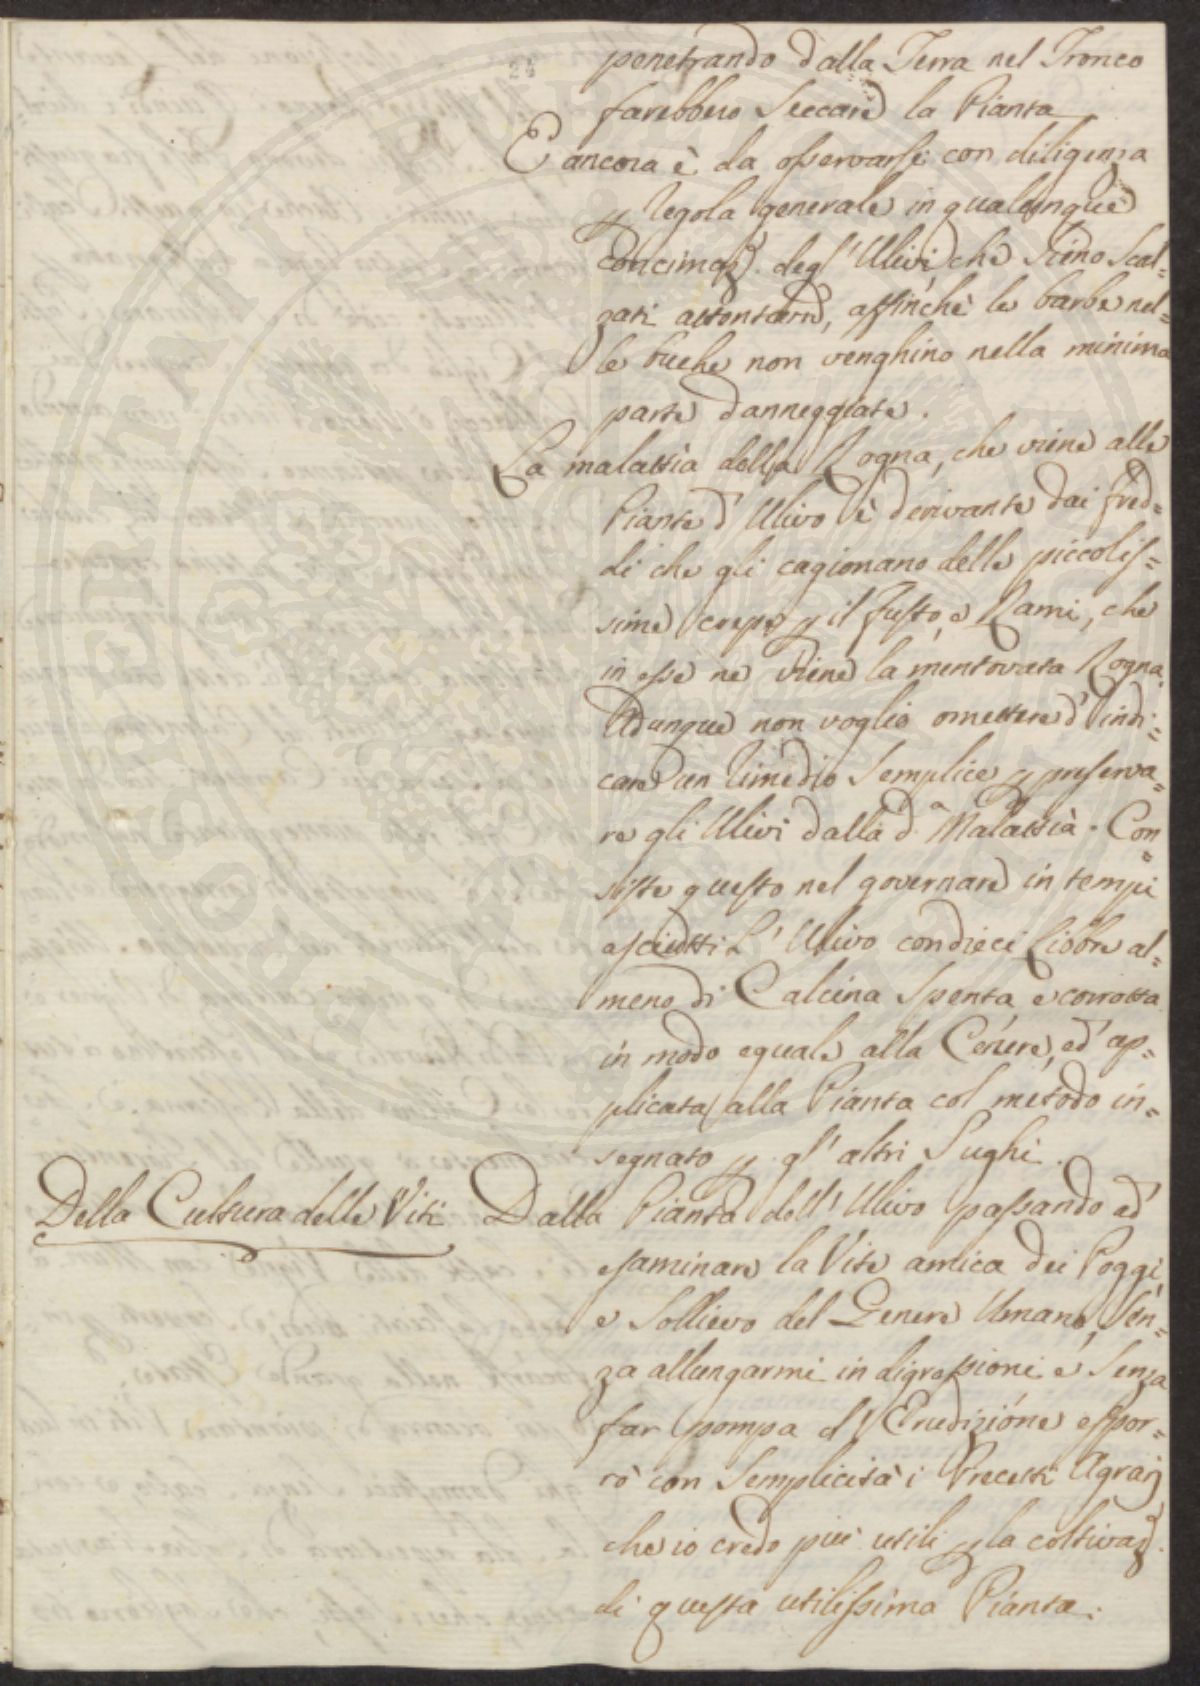 24
penetrando dalla Terra nel Tronco
farebbero Seccare la Pianta
E ancora è da osservarsi con diligenza
p Regola generale in qualunque
concimaz. degl' Ulivi, che Siino Scal=
zati attontorno, affinchè le barbe nel=
le buche non venghino nella minima
parte danneggiate.
La malattia della Rogna, che viene alle
Piante d' Ulivo è derivante dai fred=
di che gli cagionano delle piccolis=
sime crepe p il fusto, e Rami, che
in esse ne viene la mentovata Rogna.
Adunque non voglio omettere d' indi=
care un rimedio Semplice p preserva=
re gli Ulivi dalla d.a Malattia. Con=
siste questo nel governare in tempi
asciutti L' Ulivo con dieci Libbre al=
meno di Calcina Spenta, e corrotta
in modo eguale alla Cenere, ed' ap=
plicata alla Pianta col metodo in=
segnato p gl' altri Sughi.
Della Cultura delle Viti
Dalla Pianta dell' Ulivo passando ed'
esaminare la Vite amica dei Poggi,
e Sollievo del Genere Umano, Sen=
za allungarmi in digressioni e Senza
far pompa d' Erudizione espor=
rò con Semplicità i Precetti Agrarj
che io credo più utili p la coltivaz.
di questa utilissima Pianta.
PROSPERITATI PUBLICAE